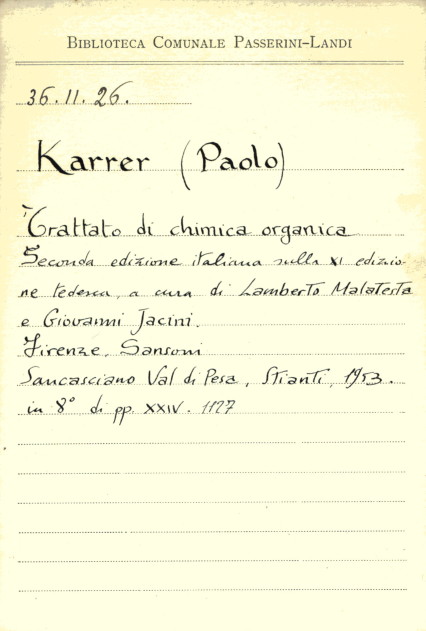 BIBLIOTECA COMUNALE PASSERINI-LANDI
36.11.26.
Karrer (Paolo)
Trattato di chimica organica
Seconda edizione italiana sulla XI edizio-
ne tedesca, a cura di Lamberto Malatesta
e Giovanni Jacini.
Firenze, Sansoni
Sancasciano Val di Pesa, Stianti, 1953.
in 8° di pp. XXIV. 1127